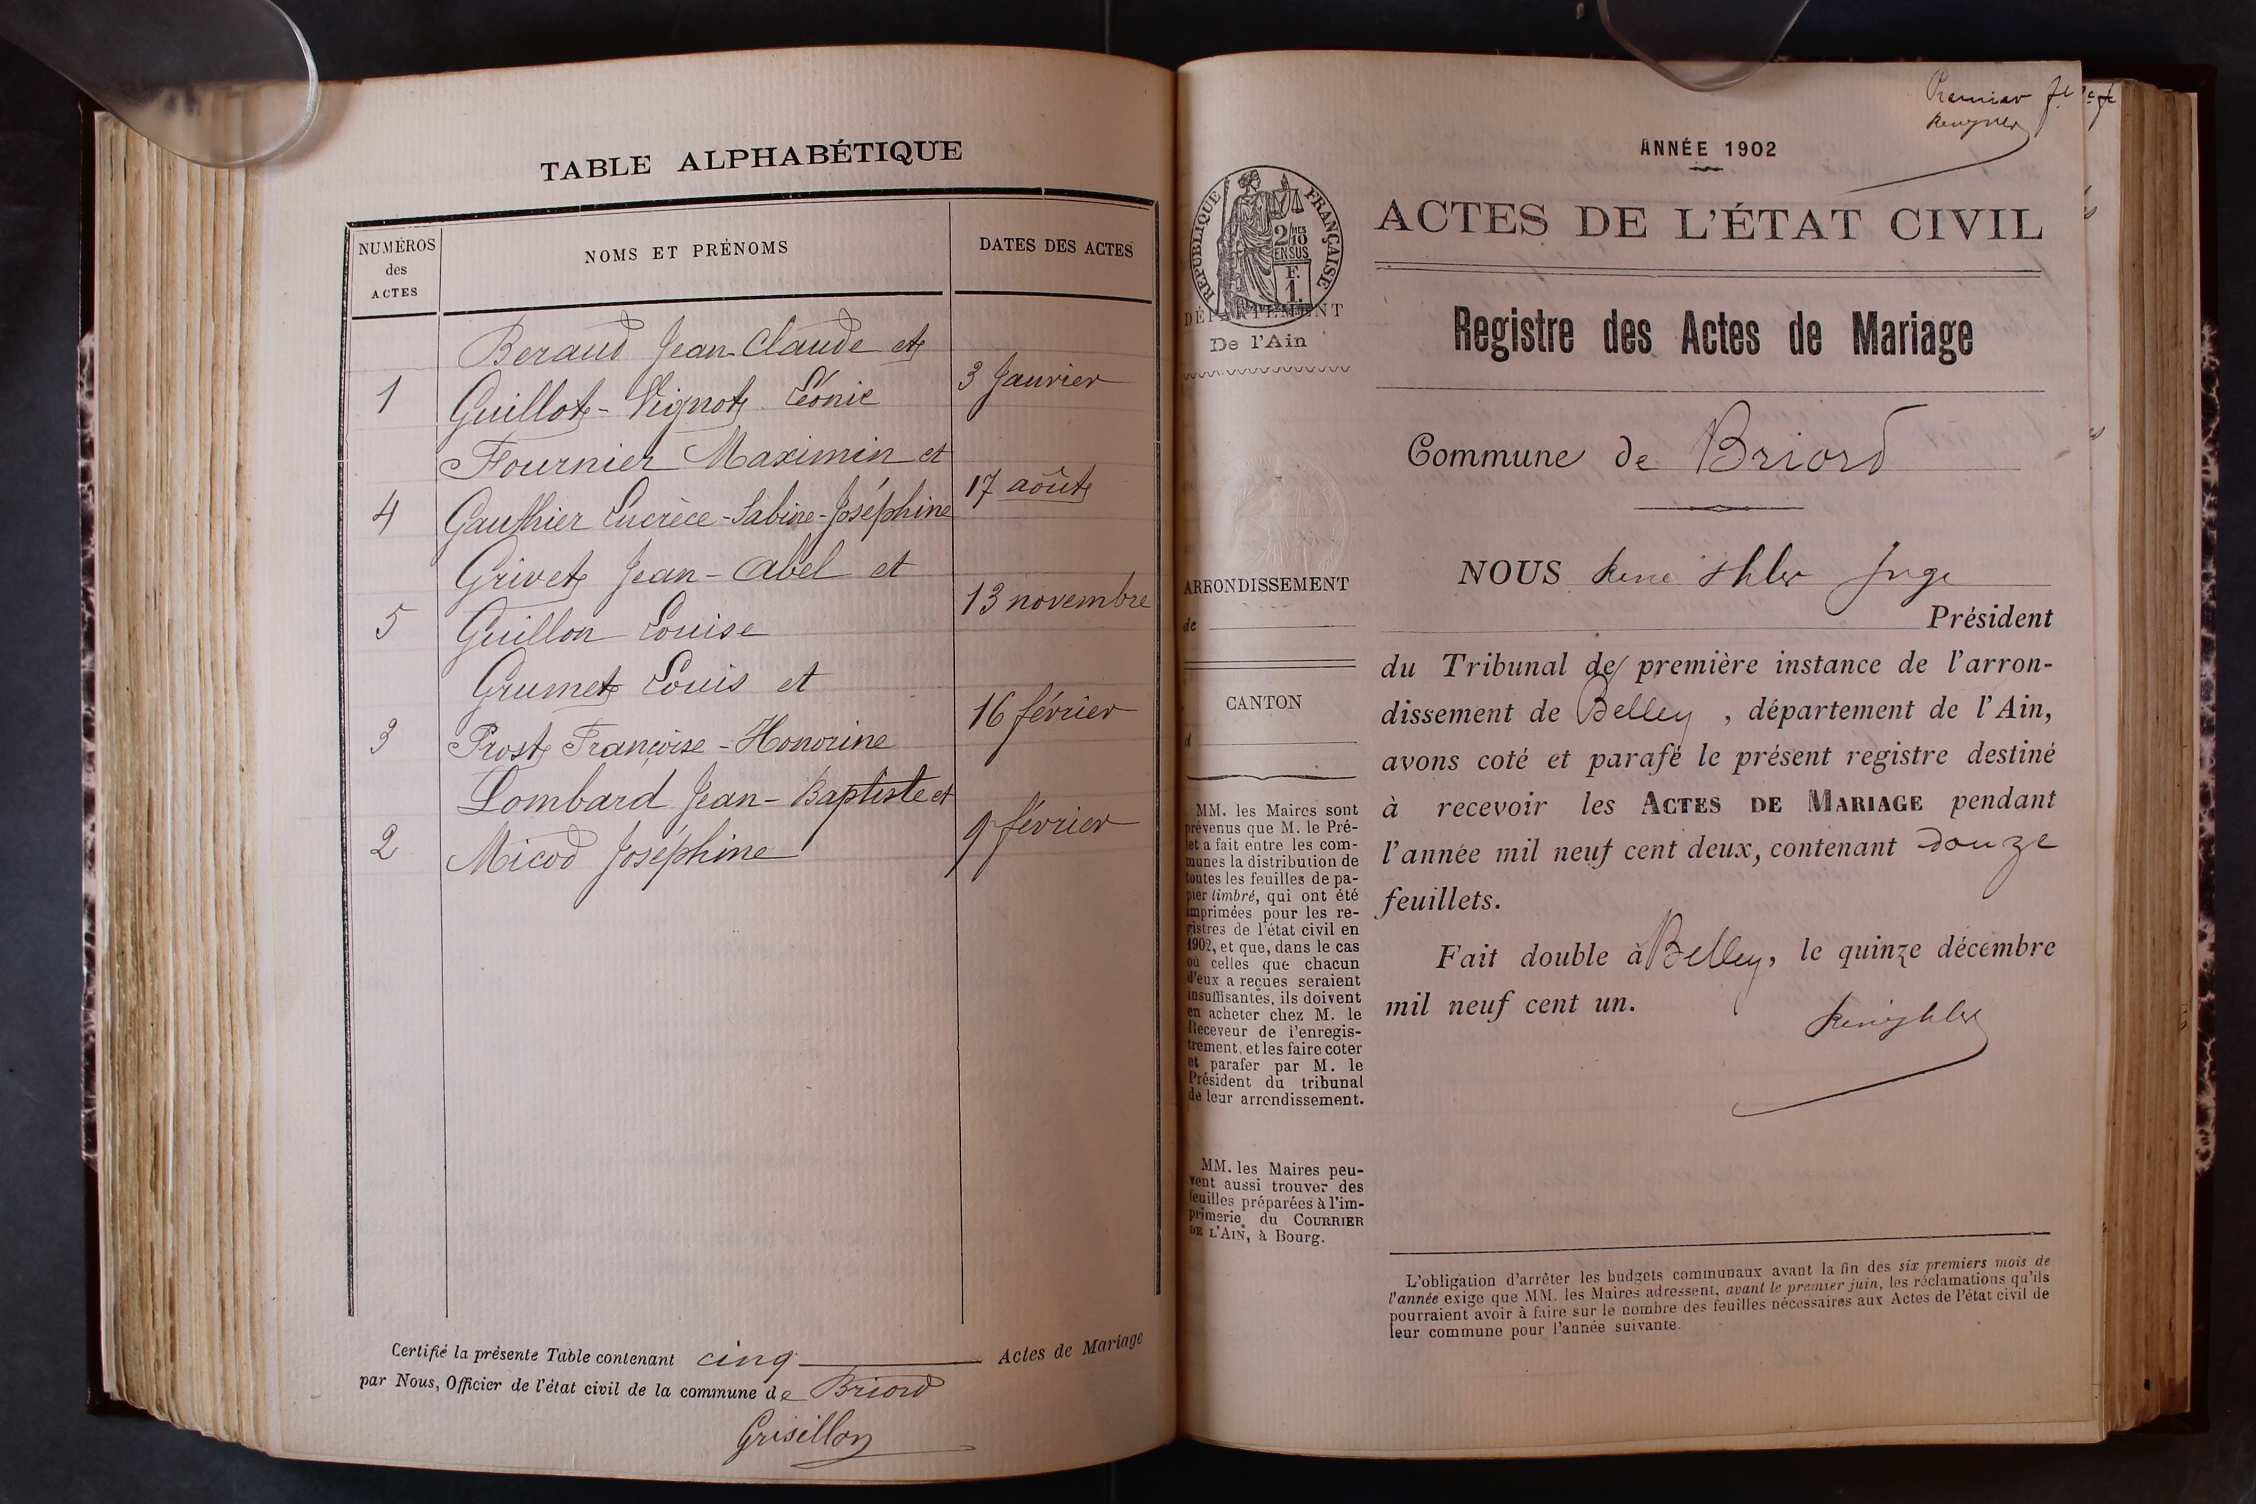 TABLE ALPHABÉTIQUE
NUMÉROS
des
ACTES
NOMS ET PRÉNOMS
DATES DES ACTES
Beraud Jean-Claude et
1 Guillot-Vignot Léonie 3 Janvier
Fournier Maximin et
4 Gauthier Lucrèce-Sabine-Joséphine 17 août
Grivet Jean-Abel et
5 Guillon Louise 13 novembre
Grumet Louis et
3 Prost Françoise-Honorine 16 février
Lombard Jean-Baptiste et
2 Micod Joséphine 9 février
Certifié la présente Table contenant cinq Actes de Mariage
par Nous, Officier de l'état civil de la commune de Briord
Grisillon
Premier
ANNÉE 1902
RÉPUBLIQUE FRANÇAISE
2/10
EN SUS
F.
1.
DÉPARTEMENT
De l'Ain
ARRONDISSEMENT
de
CANTON
d
MM. les Maires sont
prévenus que M. le Pré-
fet a fait entre les com-
munes la distribution de
toutes les feuilles de pa-
pier timbré, qui ont été
imprimées pour les re-
gistres de l'état civil en
1902, et que, dans le cas
où celles que chacun
d'eux a reçues seraient
insuffisantes, ils doivent
en acheter chez M. le
Receveur de l'enregis-
trement, et les faire coter
et parafer par M. le
Président du tribunal
de leur arrondissement.
MM. les Maires peu-
vent aussi trouver des
feuilles préparées à l'im-
primerie du COURRIER
DE L'AIN, à Bourg.
ACTES DE L'ÉTAT CIVIL
Registre des Actes de Mariage
Commune de Briord
NOUS René Juge
Président
du Tribunal de première instance de l'arron-
dissement de Belley, département de l'Ain,
avons coté et parafé le présent registre destiné
à recevoir les ACTES DE MARIAGE pendant
l'année mil neuf cent deux, contenant douze
feuillets.
Fait double à Belley, le quinze décembre
mil neuf cent un.
L'obligation d'arrêter les budgets communaux avant la fin des six premiers mois de
l'année exige que MM. les Maires adressent, avant le premier juin, les réclamations qu'ils
pourraient avoir à faire sur le nombre des feuilles nécessaires aux Actes de l'état civil de
leur commune pour l'année suivante.